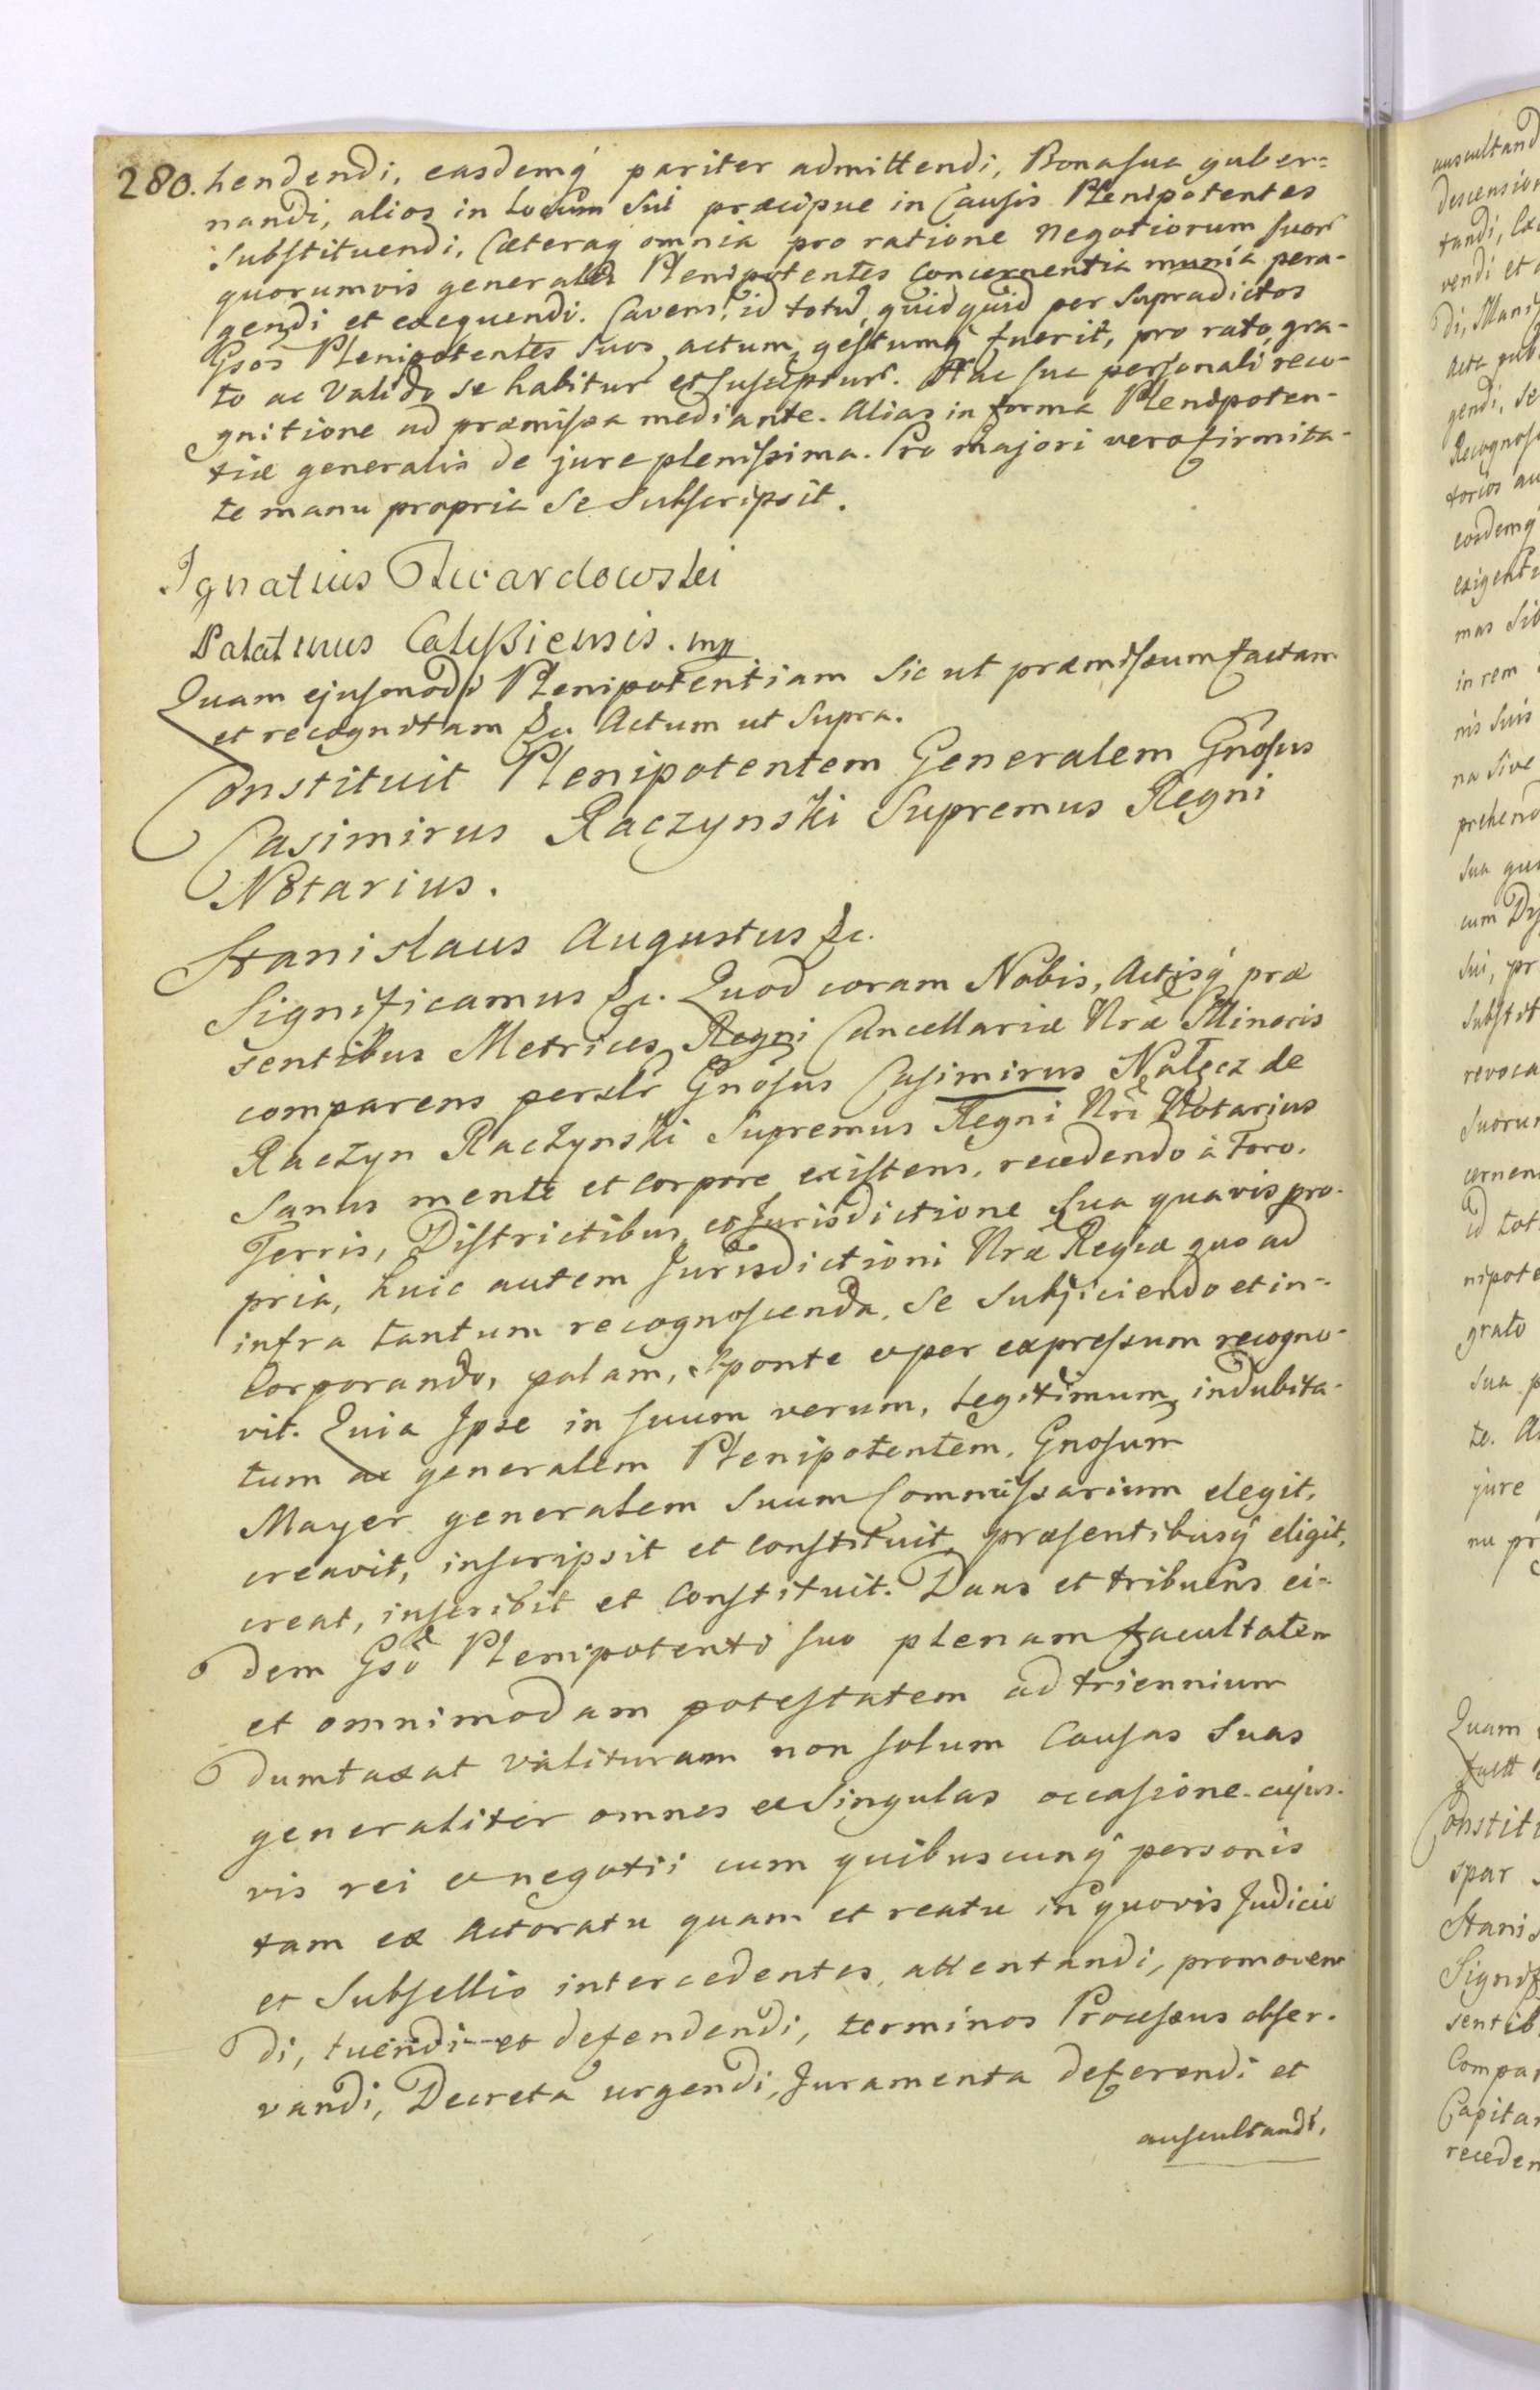 280. hendendi, easdemq́ pariter admittendi, Bona sua guber=
nandi, alios in Locum Sui præcipue in Causis Plenipotentes
substituendi, Cæteraq́ omnia pro ratione negotiorum suor̃
quorumvis generales Plenipotentes concernentia munia pera-
gendi et exequendi. Cavens, id totũ, quidquid per supradictos
Gsos Plenipotentes Suos actum, gestumq́ fuerit, pro rato, gra-
to ac Valido se habitur̃ et suscepturũ. Hac sua personali reco-
gnitione ad præmissa mediante. Alias in forma Plenipoten-
tiæ generalis de jure plenissima. Pro majori vero firmita-
te manu propria Se Subscripsit.
Ignatius Twardowski
Palatinus Calissiensis. mp
Quam ejusmodi Plenipotentiam Sic ut præmissum factam
et recognitam &c. Actum ut Supra.
Constituit Plenipotentem Generalem Gnosus
Casimirus Raczynski Supremus Regni
Notarius.
Stanislaus Augustus &c.
Significamus &c. Quod coram Nobis, Actisq́ præ
sentibus Metrices Regni Cancellariæ Nræ Minoris
comparens personlr Gnosus Casimirus Nałęcz de
Raczyn Raczynski Supremus Regni Nri Notarius
Sanus mente et corpore existens, recedendo à Foro,
Terris, Districtibus, et Jurisdictione sua quavis pro-
pria, huic autem Jurisdictioni Nræ Regiæ quo ad
infra tantum recognoscenda, Se Subjiciendo et in-
corporando, palam, sponte et per expressum recogno-
vit. Quia Ipse in suum verum, Legitimum, indubita-
tum ac generalem Plenipotentem, Gnosum
Mayer generalem Suum Commissarium elegit,
creavit, inscripsit et constituit, præsentibusq́ eligit,
creat, inscribit et Constituit. Dans et tribuens ei-
dem Gsõ Plenipotenti suo plenam facultatem
et omnimodam potestatem ad triennium
dumtaxat valituram non solum Causas Suas
generaliter omnes et Singulas occasione cujus-
vis rei et negotii cum quibuscunq́ personis
tam ex Actoratu quam et reatu in quovis Judicio
et Subsellio intercedentes, attentandi, promoven
di, tuendi et defendendi, terminos Processus obser-
vandi, Decreta urgendi, Juramenta deferendi et
auscultandi,